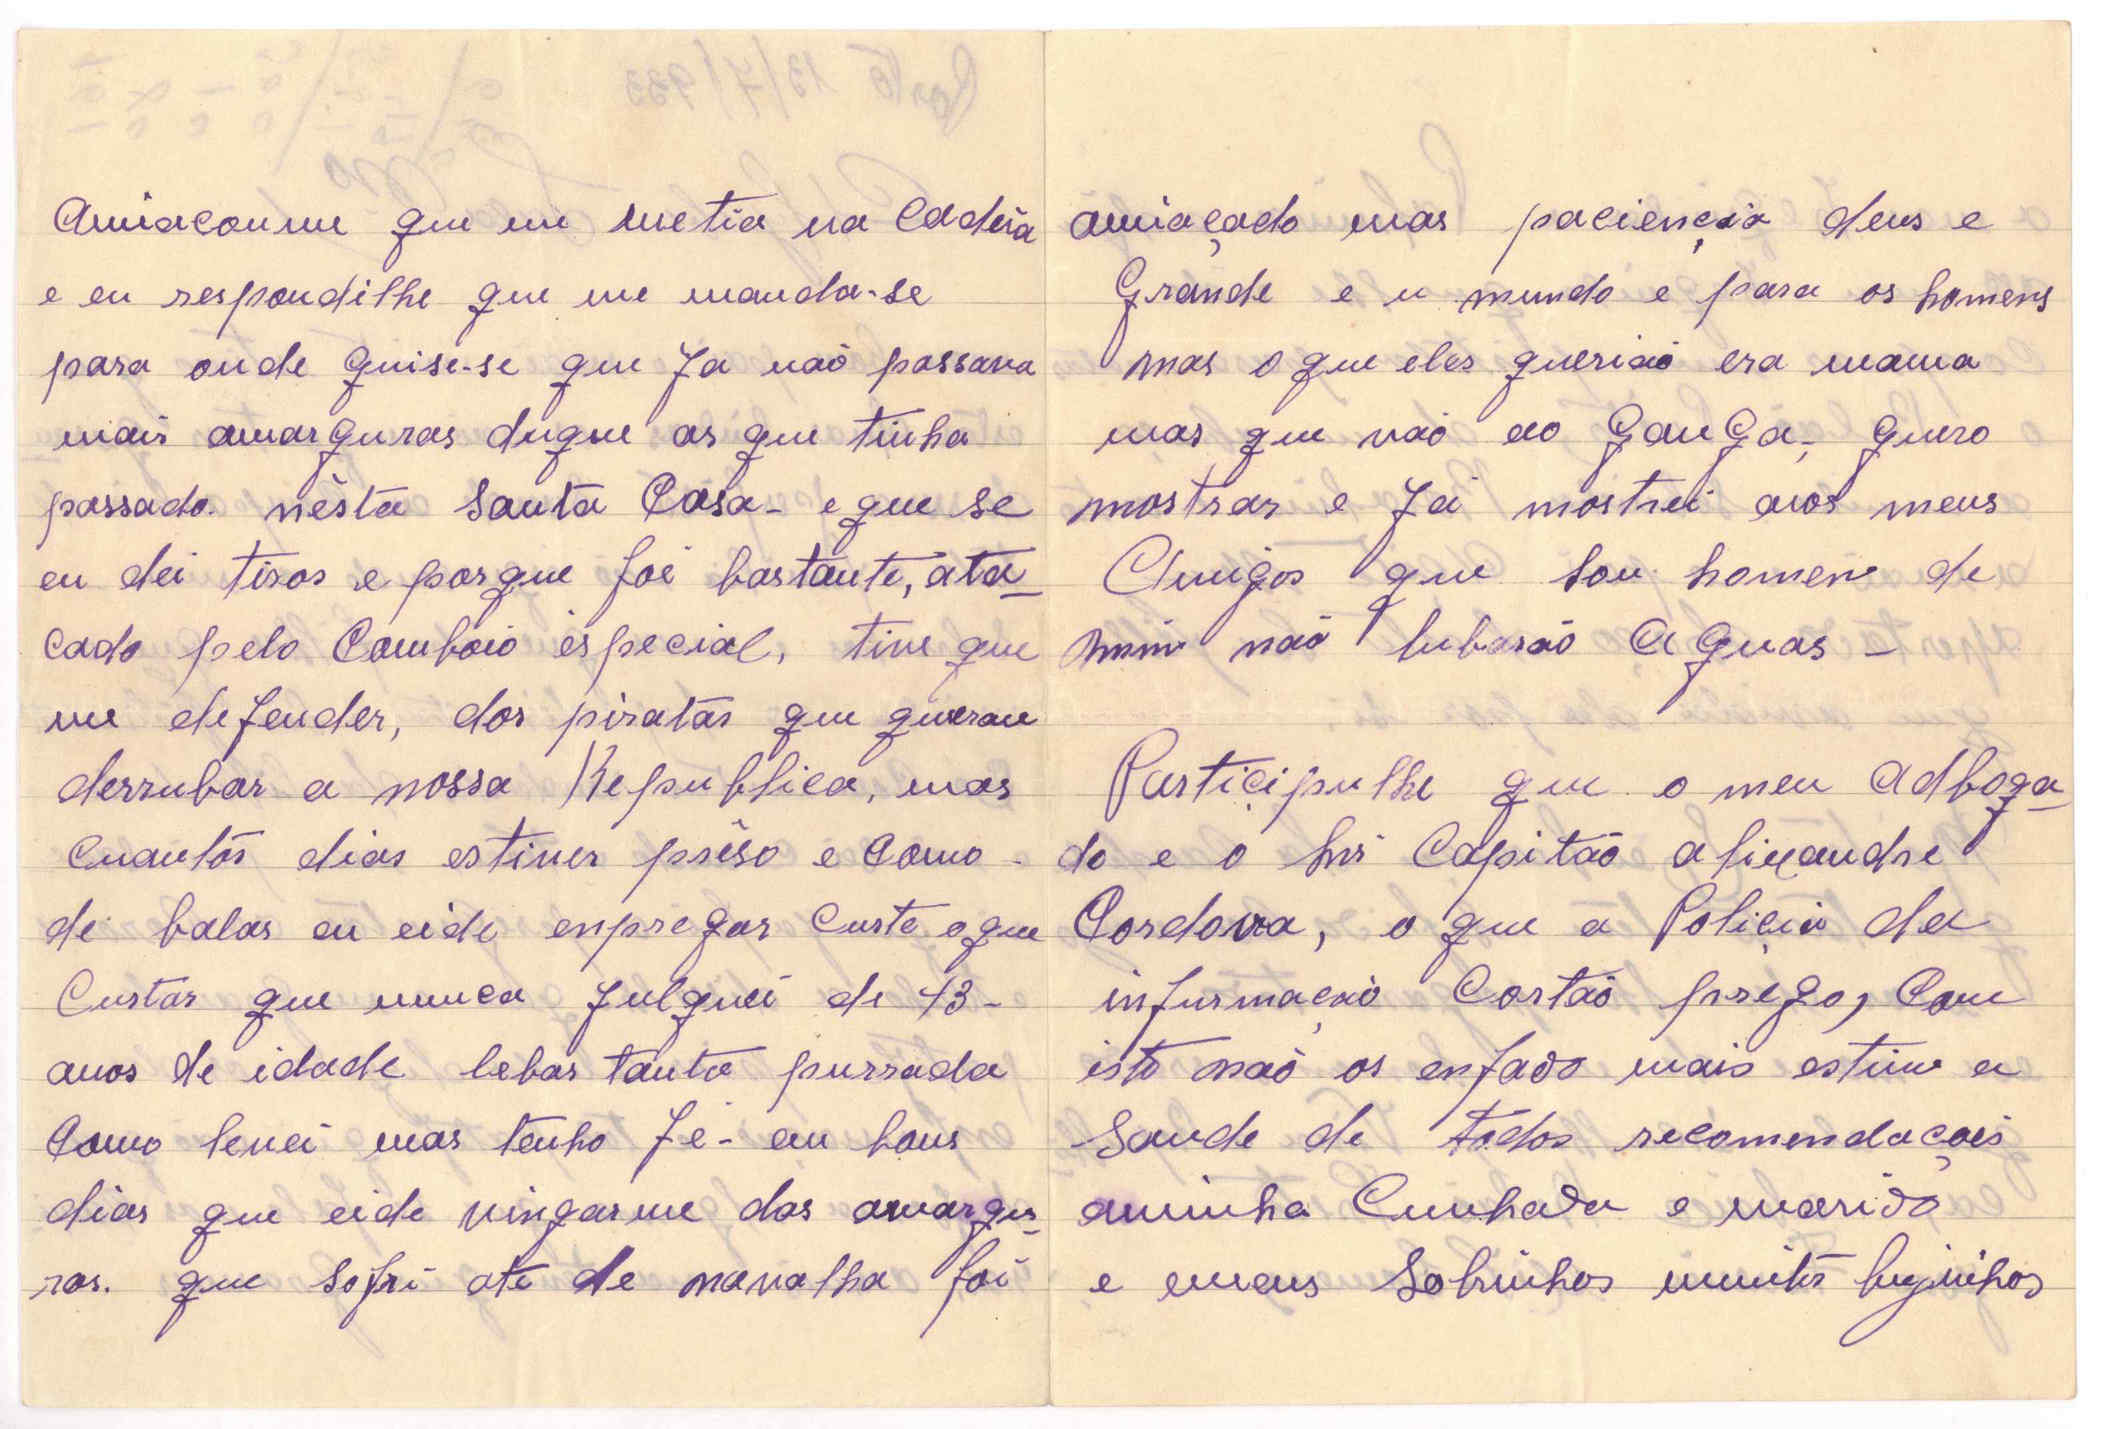 Amiacoume que me metia na Cadeia
e eu respondilhe que me manda-se
para onde quise-se que Ja naõ passava
mais amarguras duque as que tinha
passado. nésta Santa Casa - e que se
eu dei tiros e porque foi bastante, ata-
cado pelo Comboio especial, tive que
me defender, dos piratas que queram
derrubar a nossa Republica, mas
Cuantos dias estiver prêso e como -
de balas eu eide enpregar Custe oque
Custar que nunca Julguei de 43 -
anos de idade lebar tanta purrada
Como levei mas tenho Fé - em bons
dias que eide vingarme das amargu-
ras. que Sofri ate de navalha foi
amiaçado mas pacienção deus e
Grande e u mundo e para os homens
mas o que eles queriaõ era mama
mas que vaõ ao GanGa, quero
mostrar e Já mostrei aos meus
Amigos que Sou homem de
mim naõ lubaraõ Aguas -
Partiçipulhe que o meu Adboga-
do e o Snr Capitaõ alixandre
Cordova, o que a Poliçia da
infurmaçaõ Cortaõ prego, Com
isto naõ os enfado mais estime a
Saude de todos recomendaçois
aminha Cunhada e marido
e emeus Sobrinhos muitos bujinhos